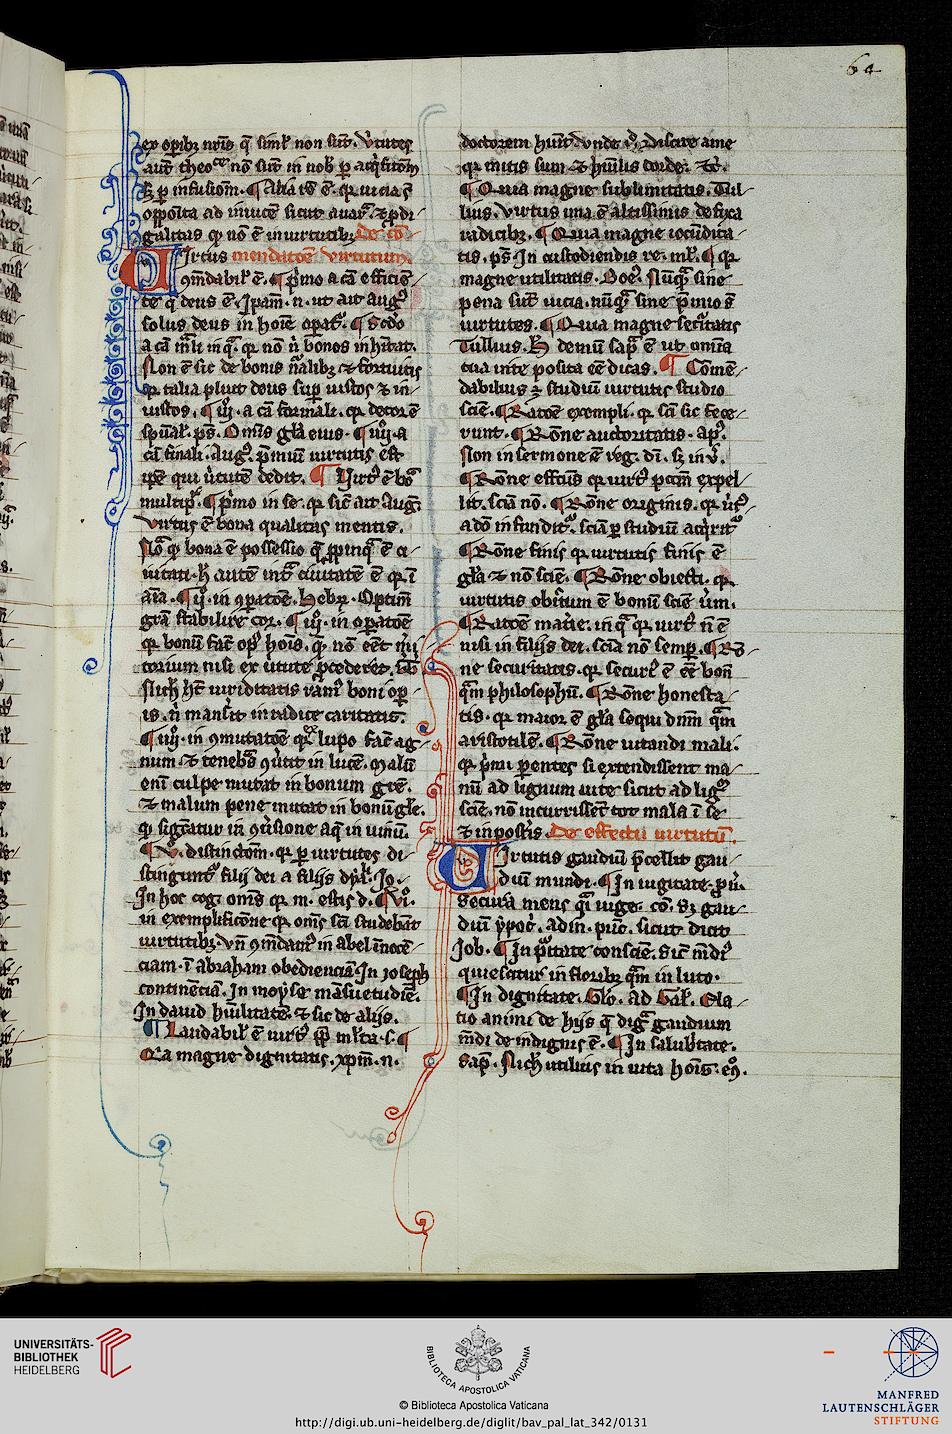 64
ex oꝑibꝫ nr̄is q̄ simĺ non sūt. v̓tutes
aut̄ theoᶜᵉ nō sūt in nob̓ ꝑ acq̓sitōm
sꝫ ꝑ infusiom̄. ¶ Alia rō ē. qꝛ uicia s̄
opposita ad inuicē sicut auar̓. ⁊ ꝓdi-
galitas qꝛ nō ē in uirtutibꝫ. De cō-
Uirtus mendatōe virtutum.
ꝯmēdabil̓ ē. ¶ p̓mo a cā efficiē-
te q̄ deus ē. ip̄am. n. ut ait augꝰ
solus deus in hoīe oꝑat᷑. ¶ Scdō
a cā māli in q̄. qꝛ nō nͥ bonos inhītat.
Non ē sic de bonis n̄alibꝫ ⁊ fortuitis
qꝛ talia pluit deus suꝑ iustos ⁊ in-
iustos. ¶ iijͦ. a cā formali. qꝛ decor ē
sp̄ual̓. ps̄. Om̄is gl̄a eius. ¶ iiijͦ. a
cā finali. Augꝰ. p̄miū uirtutis est
ip̄e qui v̓tutē dedit. ¶ Virtꝰ ē bō
multipl̓. ¶ p̓mo in se. qꝛ sic̄ ait augꝰ.
virtus ē bona qualitas mentis.
Nō qꝛ bona ē possessio q̄ ꝓpinq̄ ē ci-
uitati. h̓ autē int̓ ciuitatē ē qꝛ ī
aīa. ¶ ijͦ. in oꝑatōe. hebrꝫ. Optim̄
gr̄a stabilire cor. ¶ iijͦ. in oꝑatōe
qꝛ bonū fac̄ opꝰ hoīs. qꝛ nō eēt m̓i-
torium nisi ex v̓tute ꝓcederet.
Nich̓ h̄t uiriditatis ramꝰ boni oꝑ-
is. nͥ māserit in radice caritatis.
¶ iiijͦ. in ꝯmutatōe qꝛ ex lupo fac̄ ag-
num. ⁊ tenebs̄ ꝯu̓tit in lucē. Malū
enī culpe mutat in bonum grē.
⁊ malum pene mutat in bonū gl̄e.
qꝛ sigͣtur in ꝯu̓sione aq̄ in uinū.
¶ vͦ. distinctōm. qꝛ ꝑ uirtutes di-
stingunt᷑ filij dei a filijs dyͣl̓. Jo.
In hoc cog. om̄s qꝛ m. estis d. ¶ vjͦ.
in exemplificōne qꝛ om̄s sc̄i studebāt
uirtutibꝫ. vn̄ ꝯmēdant᷑ in abel īnocē-
ciam. ī abraham obedienciā. In ioseph
continēciā. In moyse māsuetudiē.
In dauid hūilitatē. ⁊ sic de alijs.
¶ Laudabil̓ ē uirtꝰ ꝓp̄ ml̓ta. s. ¶
Ra magne dignitatis. xp̄m. n.
doctorem hūit. vnde vͤ. Discite a me
qꝛ mitis sum ⁊ hūilis corde. ⁊c̄.
¶ Quia magne sublimitatis. Tul-
lius. Virtus una ē altissimis defixa
radicibꝫ. ¶ Quia magne iocūdita-
tis. ps̄. In custodiendis re. ml̓. ¶ qꝛ
magne utilitatis. Boeͨ. Nūq̄ sine
pena sūt uicia. nūq̄ sine p̄mio s̄
uirtutes. ¶ Quia magne secū̓tatis
Tullius. H̓ demū saꝑ̄ ē ut om̄ia
tua inte posita eē dicas. ¶ Comē-
dabilius ē studiū uirtutis studio
scīe. ¶ Ratōe exempli. qꝛ sc̄i sic fece-
runt. ¶ Rōne auctoritatis. apꝰ.
Non in sermone ē reg. dī. sꝫ in vͤ.
¶ Rōne effc̄us qꝛ uirtꝰ pcc̄m expel-
lit. sciā nō. ¶ Rōne originis. qꝛ v̓tꝰ
a dō infundit᷑. sciā ꝑ studiū acq̓rit᷑
¶ Rōne finis qꝛ uirtutis finis ē
gl̄a ⁊ nō scīe. ¶ Rōne obiecti. qꝛ
uirtutis obīctum ē bonū scīe v̓um.
¶ Ratōe mat̓ie. in q̄ qꝛ uirtꝰ n̄ ē
nisi in filijs dei. scīa nō semꝑ. ¶ Rō-
ne securitatis. qꝛ securꝰ ē eē bon̄
qͣm philosophū. ¶ Rōne honesta-
tis. qꝛ maior ē gl̄a sequi dn̄m qͣm
aristotilē. ¶ Rōne uitandi mali.
qꝛ p̓mi parentes si extendissent ma-
nū ad lignum uite sicut ad ligͫ
scīe. nō incurrissēt tot mala ī se
⁊ in post̓is. De effectu uirtutū.
Uirtutis gaudiū p̄cellit gau-
diū mundi. ¶ In iugitate. ꝓū̓.
Secura mens qͣi iuge. cō. Sꝫ gau-
diū ypoc̓. ad in. pūc̄. sicut dicit
Job. ¶ In pͥtate conscīe. Sic̄ m̄dꝰ
quiescitur in florībꝫ qͣm in luto.
¶ In dignitate. Glo. ad Gal̓. Ela-
tio animi de hijs q̄ digͣ gaudium
m̄di de indignis ē. ¶ In salub̓tate.
Sap̄. Nich̓ utilius in uita hoīs. eͦꝰ.
UNIVERSITÄTS-
BIBLIOTHEK
HEIDELBERG
BIBLIOTECA APOSTOLICA VATICANA
© Biblioteca Apostolica Vaticana
http://digi.ub.uni-heidelberg.de/diglit/bav_pal_lat_342/0131
MANFRED
LAUTENSCHLÄGER
STIFTUNG